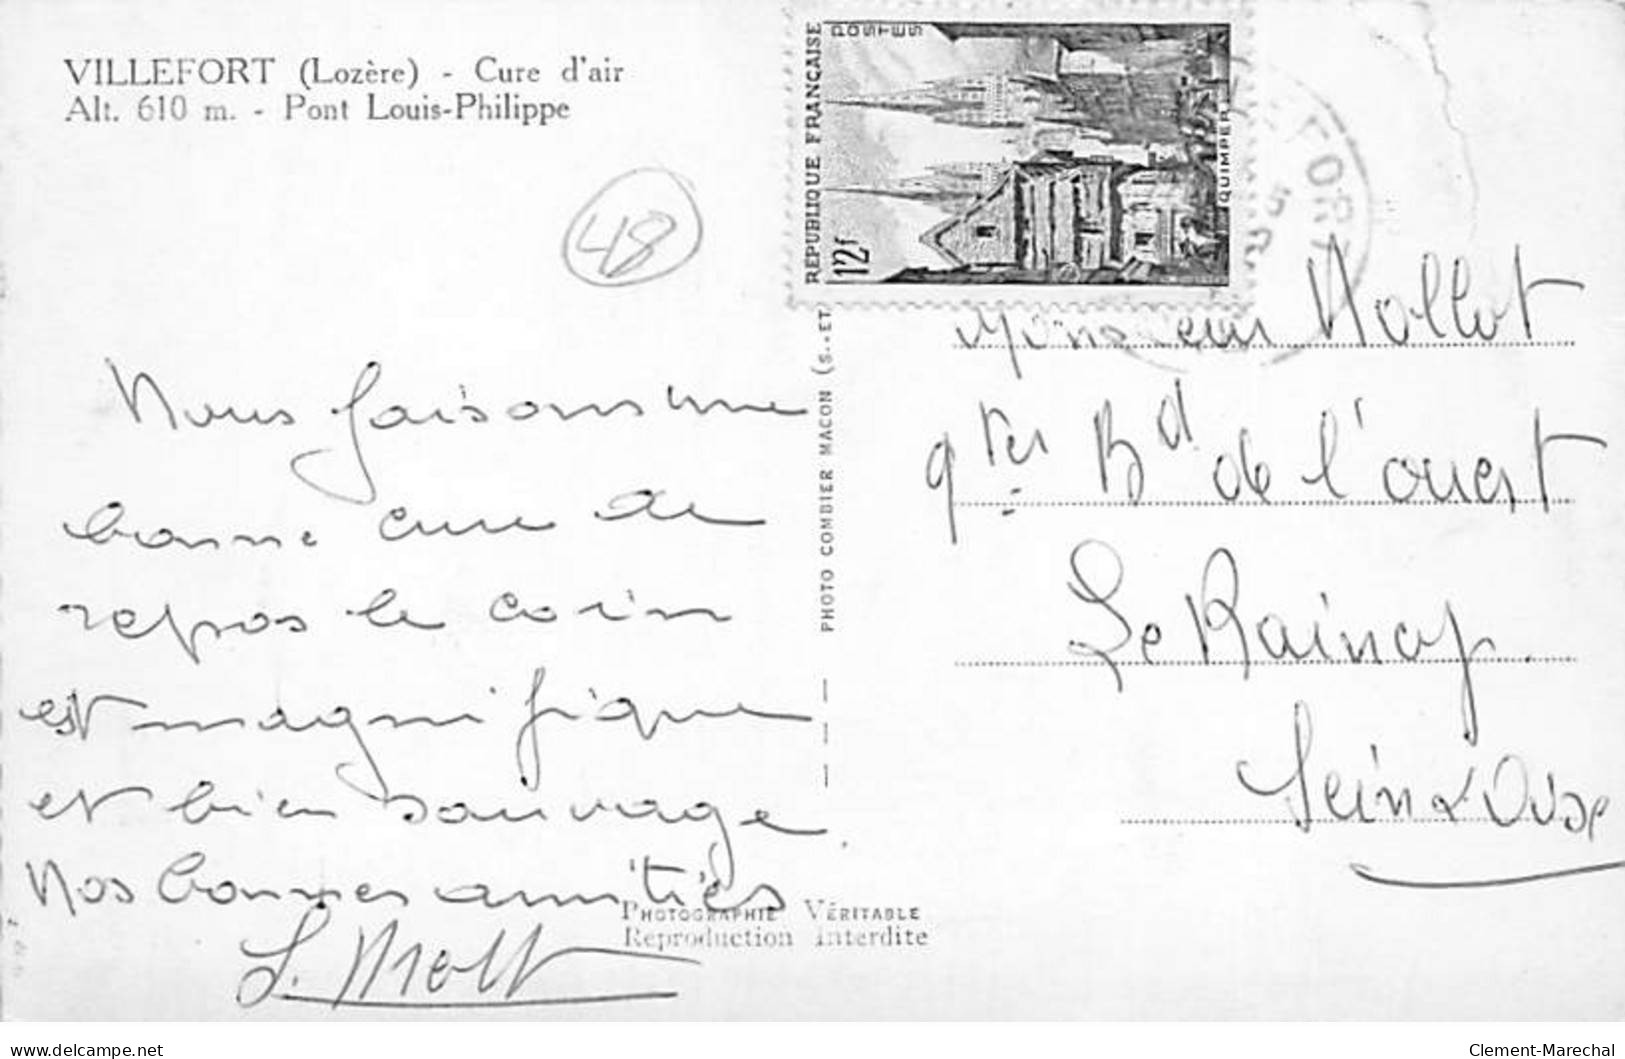 VILLEFORT (Lozère) - Cure d'air
Alt. 610 m. - Pont Louis-Philippe
48
RÉPUBLIQUE FRANÇAISE
POSTES
12f
QUIMPER
Nous faisons une
bonne cure de
repos le coin
est magnifique
et bien sauvage.
Nos bonnes amitiés
PHOTO COMBIER MACON (S.-ET
Monsieur Mollot
9ter Bd de l'ouest
Le Raincy
Seine & Oise
PHOTOGRAPHIE VÉRITABLE
Reproduction Interdite
delcampe.net
Clement-Marechal